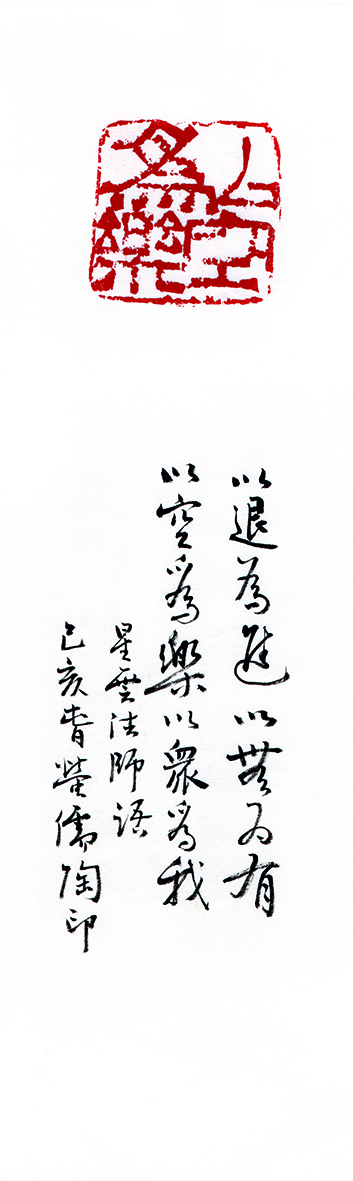 以空為樂
以退為進以無為有
以空爲樂以眾爲我
星雲法師語
己亥春瑩儒陶印